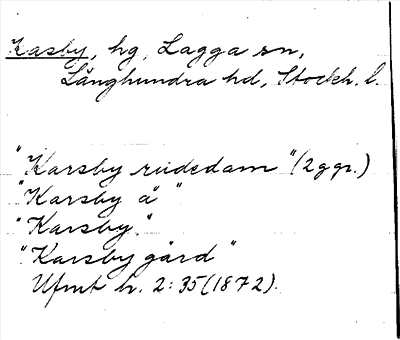 Kasby, hg, Lagga sn,
Långhundra hd, Stockh. l.
"Karsby ruddam" (2 ggr.)
"Karsby å"
"Karsby"
"Karsby gård"
Ufmt h. 2:35 (1872).